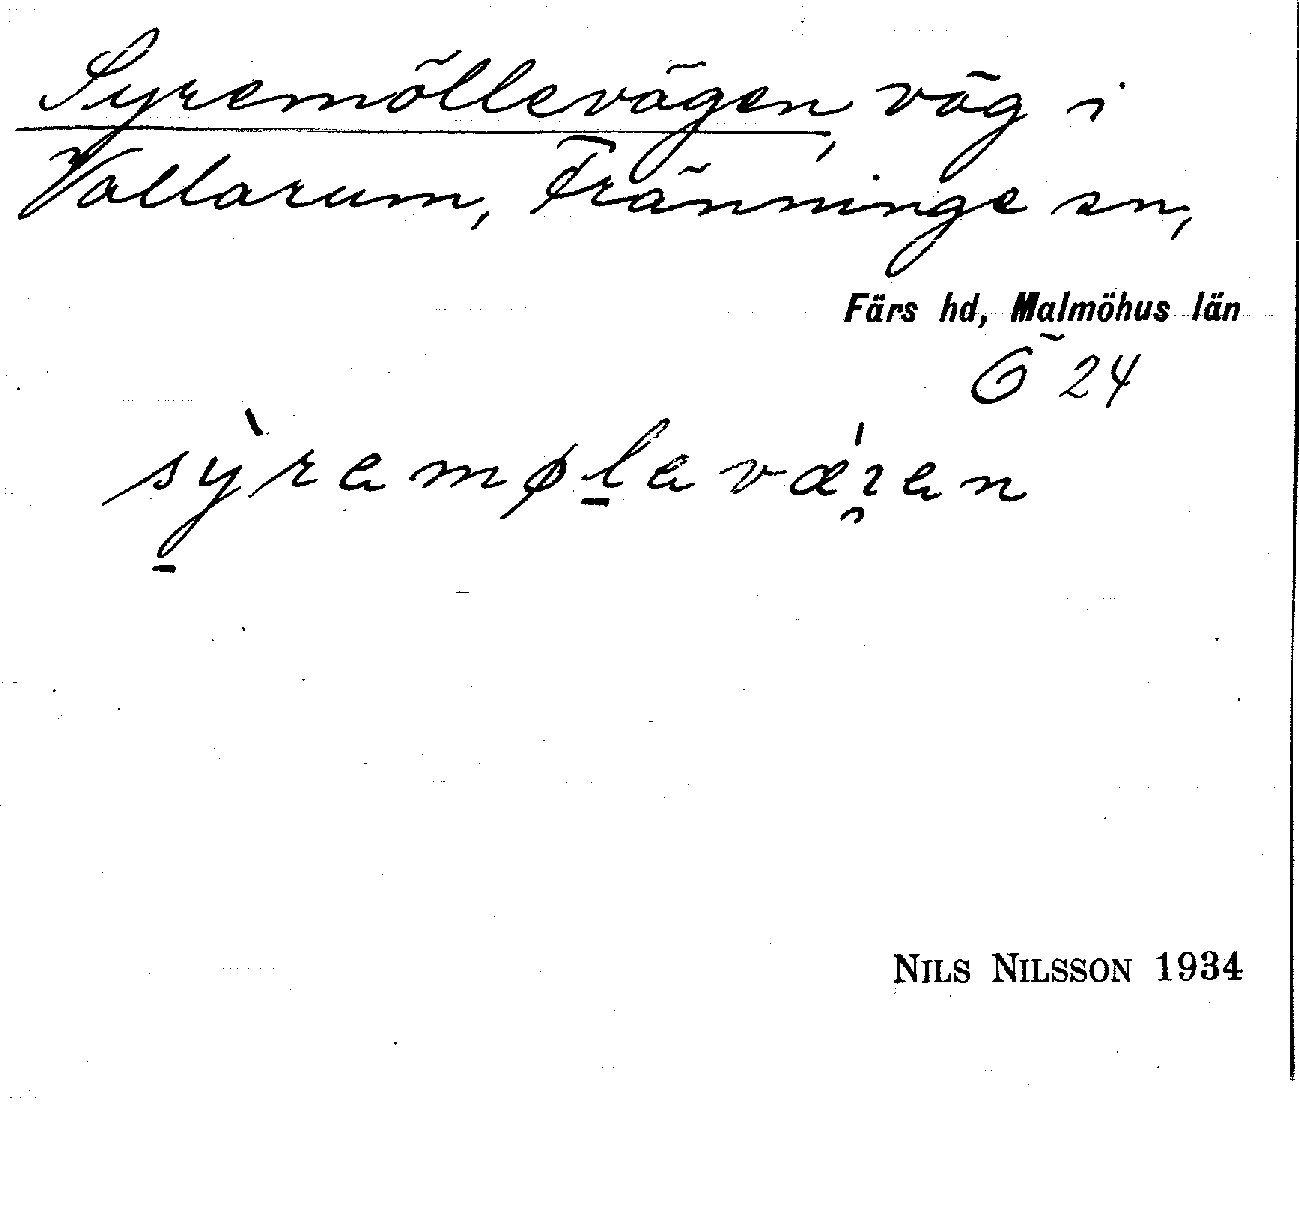 Syremöllevägen, väg i
Vallarum, Fränninge sn,
Färs hd, Malmöhus län
Ö 24
sỳ̠rəmøl̠əvǽı̯ən
NILS NILSSON 1934